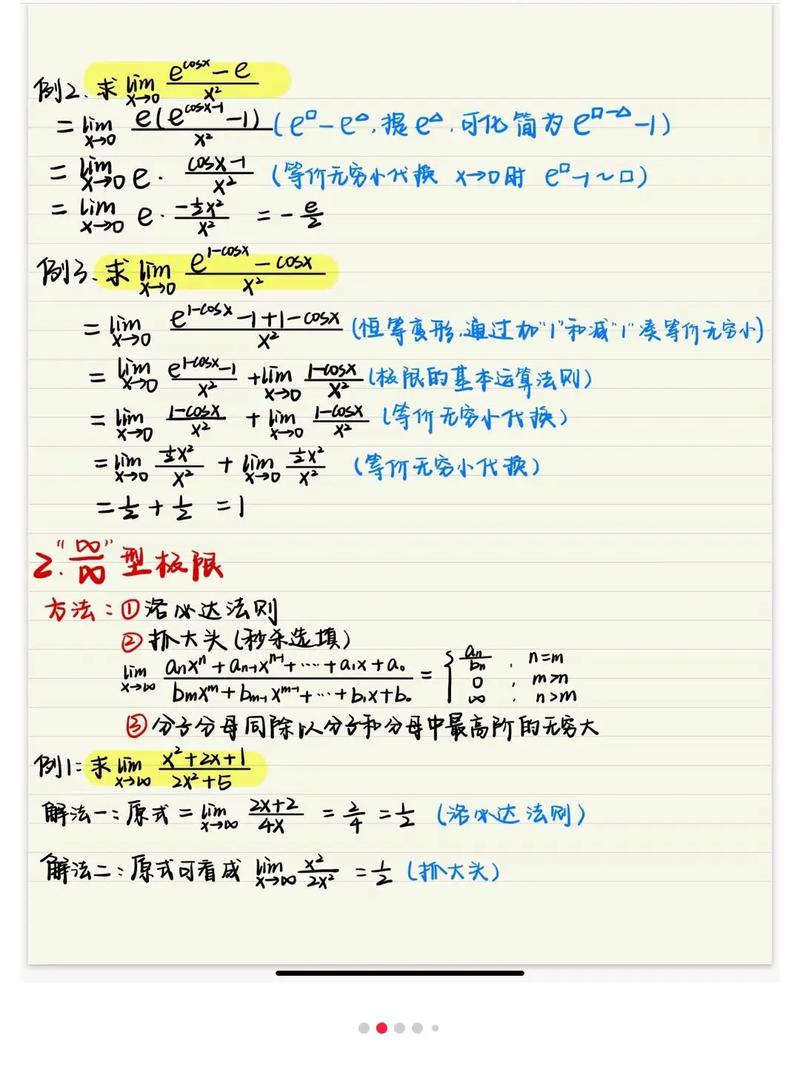 例2. 求 lim x→0 (e^cosx − e)/x²
= lim x→0 e(e^(cosx−1) −1)/x² (e^□ − e^△, 提 e^△, 可化简为 e^(□−△) −1)
= lim x→0 e· (cosx−1)/x² (等价无穷小代换 x→0时 e^□−1~□)
= lim x→0 e· (−½x²)/x² = − e/2
例3. 求 lim x→0 (e^(1−cosx) − cosx)/x²
= lim x→0 (e^(1−cosx) −1+1−cosx)/x² (恒等变形,通过加"1"和减"1"凑等价无穷小)
= lim x→0 (e^(1−cosx)−1)/x² + lim x→0 (1−cosx)/x² (极限的基本运算法则)
= lim x→0 (1−cosx)/x² + lim x→0 (1−cosx)/x² (等价无穷小代换)
= lim x→0 (½x²)/x² + lim x→0 (½x²)/x² (等价无穷小代换)
= ½ + ½ = 1
2. "∞/∞" 型极限
方法: ① 洛必达法则
② 抓大头 (秒杀选填)
lim x→∞ (aₙxⁿ + aₙ₋₁xⁿ⁻¹ + ··· + a₁x + a₀)/(bₘxᵐ + bₘ₋₁xᵐ⁻¹ + ··· + b₁x + b₀) = { aₙ/bₙ , n=m
0 , m>n
∞ , n>m
③ 分子分母同除以分子和分母中最高阶的无穷大
例1: 求 lim x→∞ (x²+2x+1)/(2x²+5)
解法一: 原式 = lim x→∞ (2x+2)/4x = 2/4 = ½ (洛必达法则)
解法二: 原式可看成 lim x→∞ x²/2x² = ½ (抓大头)